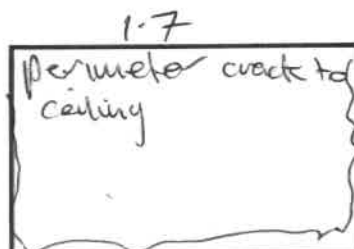 1.7
perimeter crack to
ceiling